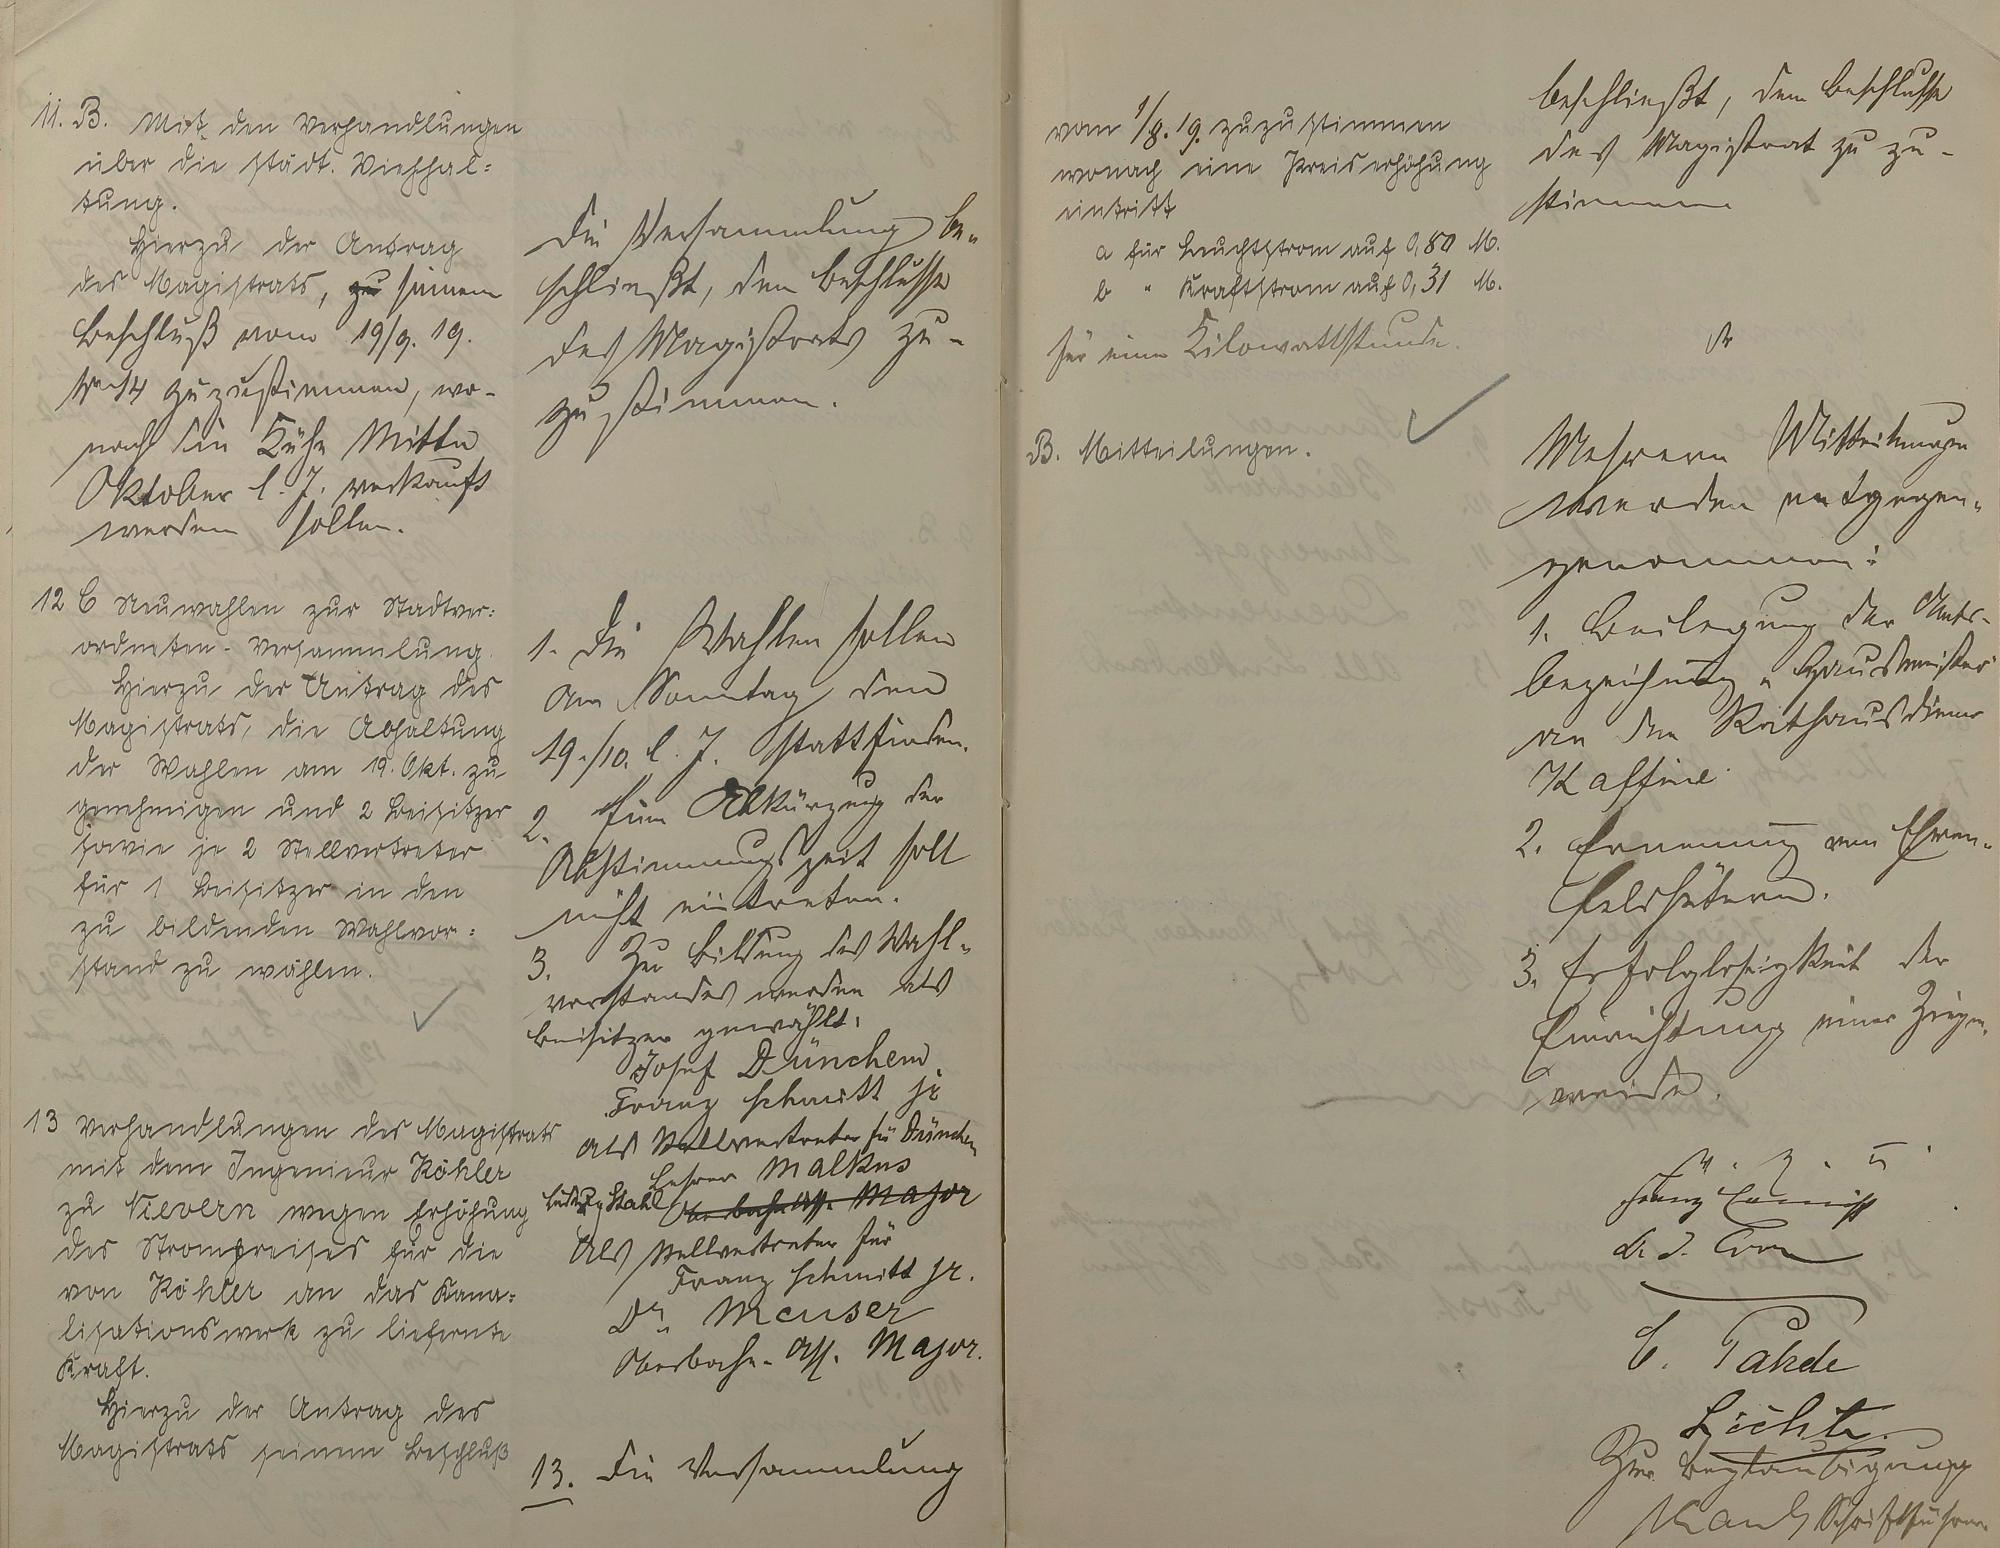 11. B. Mit den Verhandlungen
über die städt. Viehhal=
tung.
Hierzu der Antrag
des Magistrats, zu seinem
Beschluß vom 19/9. 19.
No 14 zuzustimmen, wo-
nach die Kühe Mitte
Oktober l. J. verkauft
werden sollen.
Die Versammlung be-
schließt, dem Beschlusse
des Magistrats zu-
zustimmen.
12 C Neuwahlen zur Stadtver=
ordneten-Versammlung.
Hierzu der Antrag des
Magistrats, die Abhaltung
der Wahlen am 19. Okt. zu
genehmigen und 2 Beisitzer
sowie je 2 Stellvertreter
für 1 Beisitzer in den
zu bildenden Wahlvor=
stand zu wählen.
1. Die Wahlen sollen
am Sonntag den
19./10. l. J. stattfinden.
2. Eine Abkürzung der
Abstimmungszeit soll
nicht eintreten.
3. Zur Bildung des Wahl-
vorstandes werden als
Beisitzer gewählt:
Josef Dünchem
Franz Schmitt jr
als Stellvertreter für Dünchem
Lehrer Malkus
Stahl Oberbahn Ass. Major
Als Stellvertreter für
Franz Schmitt jr.
Dr. Meuser
Oberbahn-Ass. Major.
13 Verhandlungen des Magistrats
mit dem Ingenieur Köhler
zu Nievern wegen Erhöhung
des Strompreises für die
von Köhler an das Kana=
lisationswerk zu liefernde
Kraft.
Hierzu der Antrag des
Magistrats seinem Beschluß
13. Die Versammlung
vom 1/8. 19. zuzustimmen
wonach eine Preiserhöhung
eintritt
a für Leuchtstrom auf 0,80 M.
b " Kraftstrom auf 0,31 M.
für eine Kilowattstunde.
beschließt, dem Beschlusse
des Magistrat zu zu-
stimmen
B. Mitteilungen.
Mehrere Mitteilungen
werden entgegen-
genommen:
1. Beilegung der Amts-
bezeichnung „Hausmeister
an den Rathausdiener
Kaffine
2. Ernennung von Ehren-
feldhütern.
3. Erfolglosigkeit der
Einrichtung einer Ziegen-
weide.
Franz
C. Pahde
Licht
Zur Beglaubigung
Schriftführer